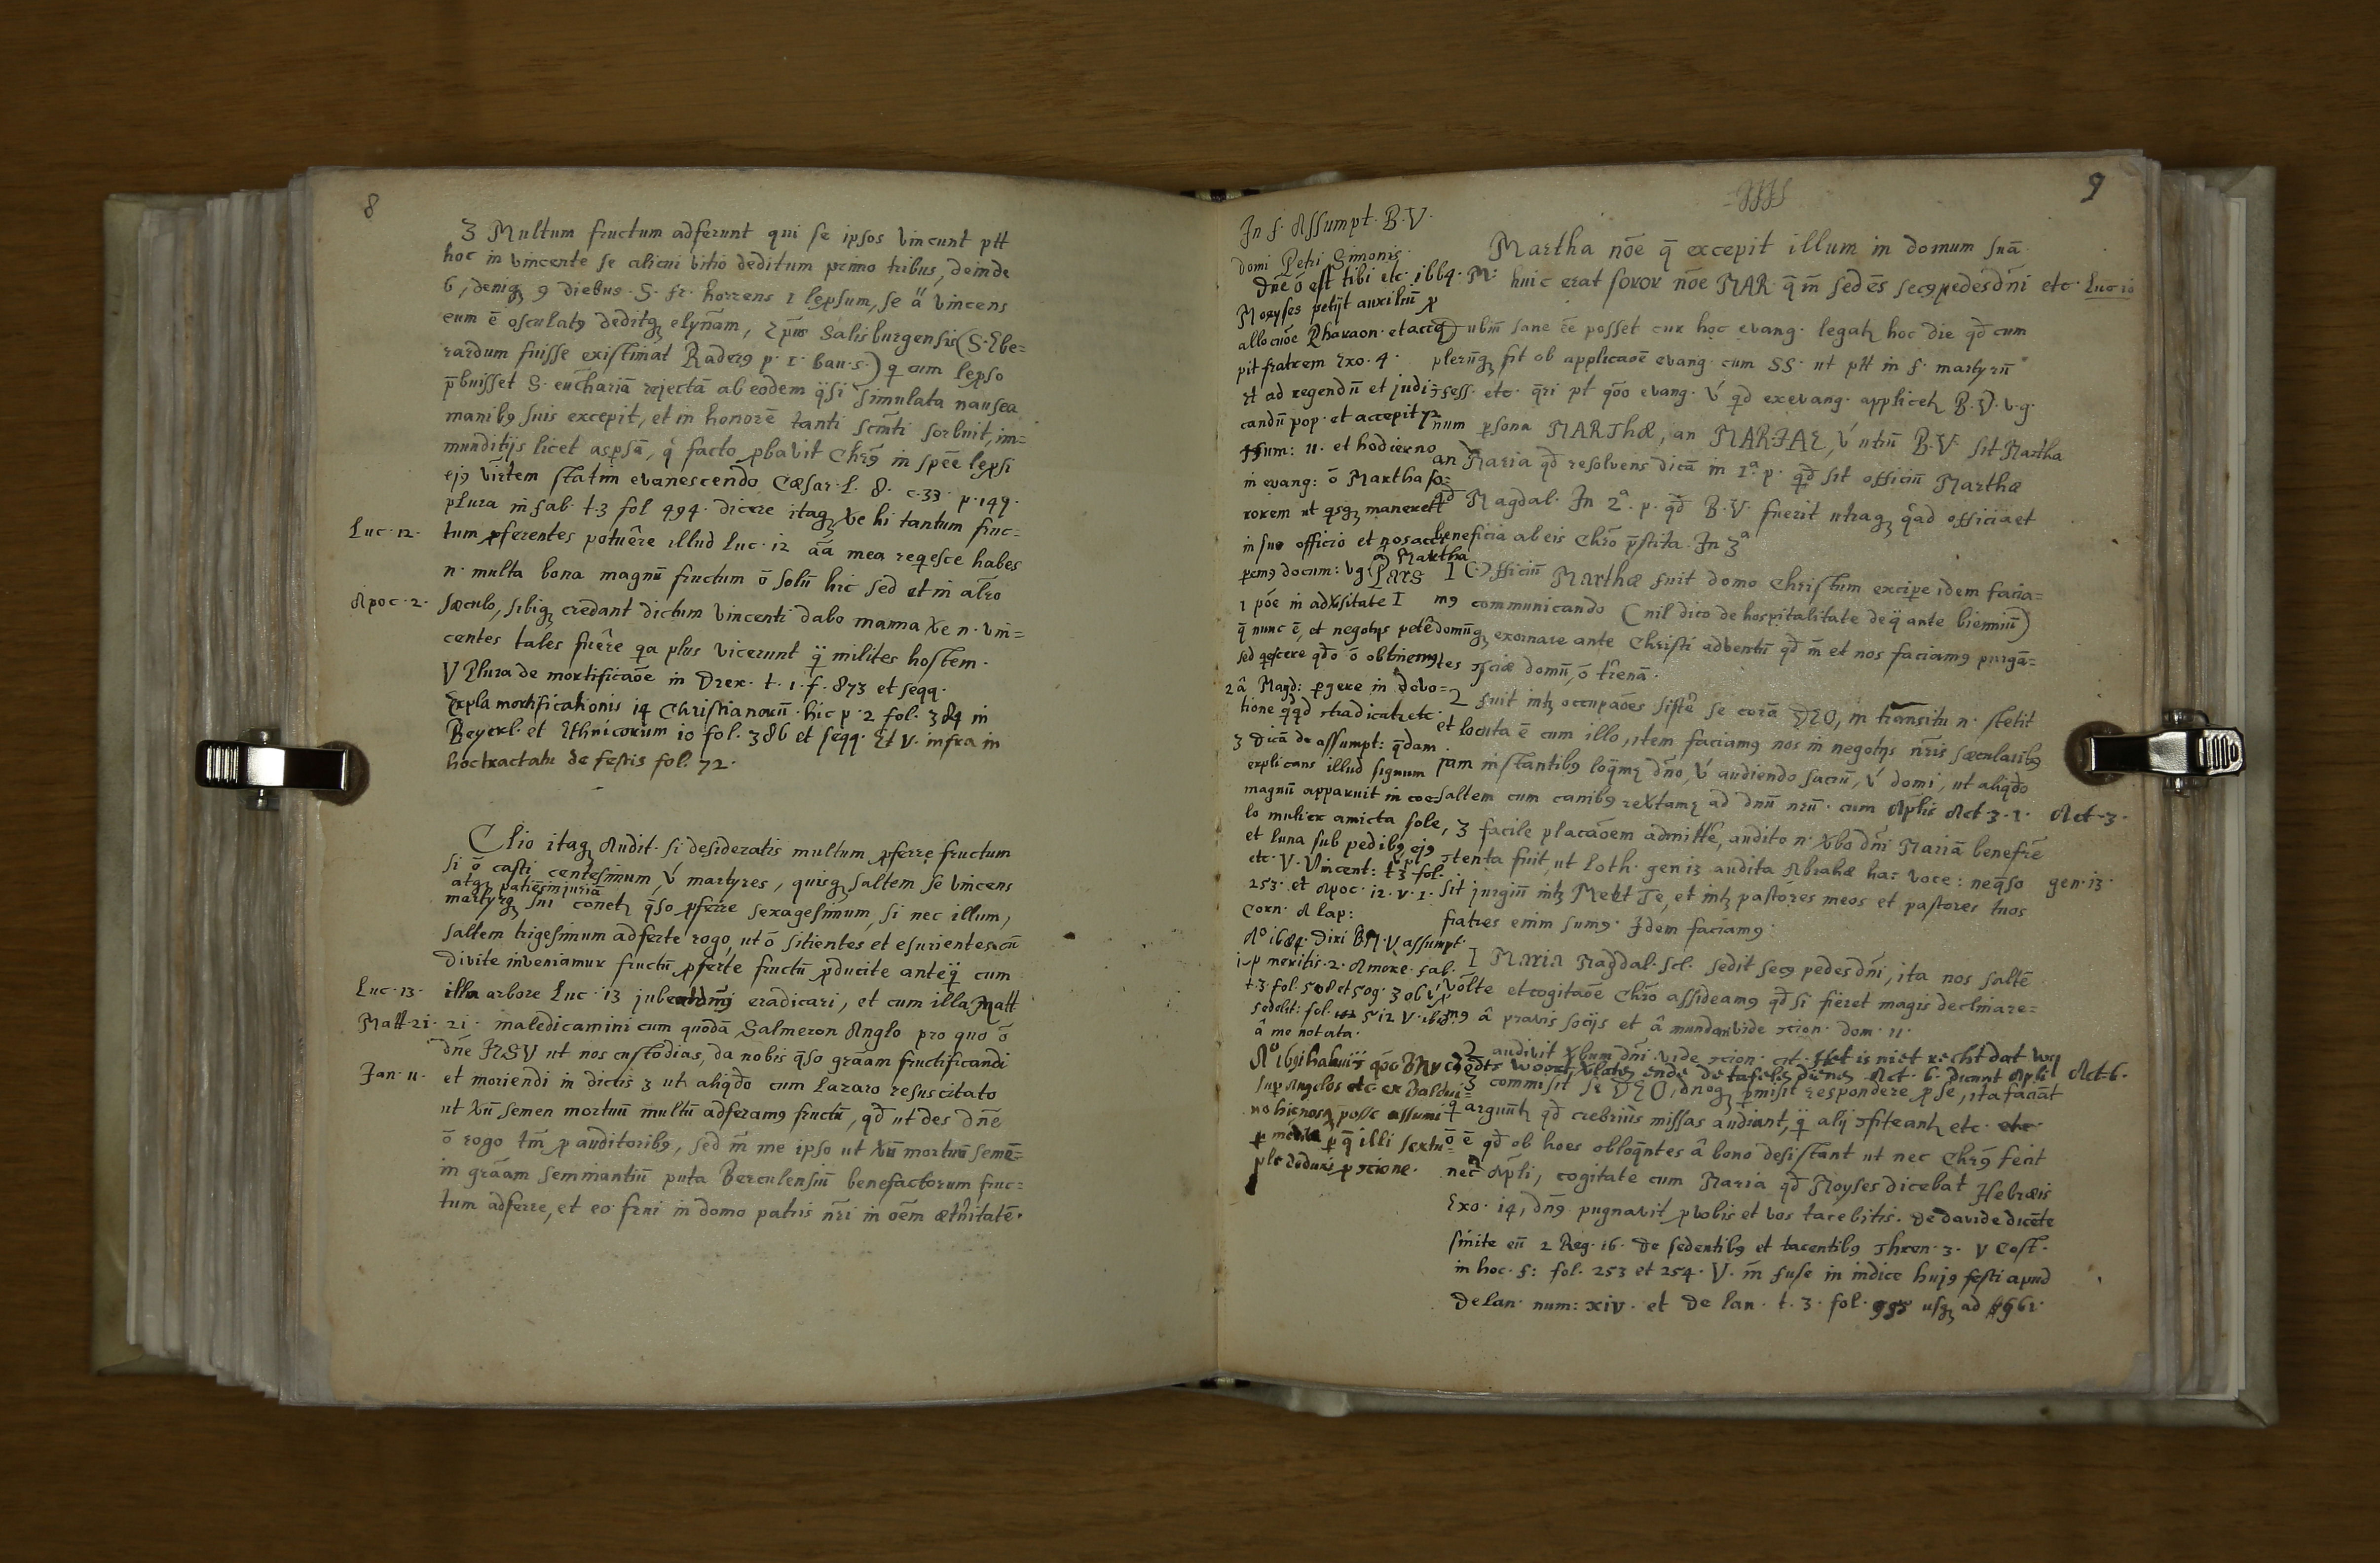 8
3 Multum fructum adferunt qui se ipsos vincunt ptt
hoc in vincente se alicui vitio deditum primo tribus, deinde
6, deniq 9 diebus. S. fr. horrens 1 lepsum, se aut vincens
eum ē osculat9 deditq elynam, Epus Salisburgensis (S. Ebe=
rardum fuisse existimat Rader9 p. 1. bau. s.) q cum lepso
p̄buisset S. euchariā rejectā ab eodem q̄si simulata nausea
manib9 suis excepit, et in honorē tanti scm̄ti sorbuit, im=
munditijs licet aspsā, q̀ facto pbavit Chr̄9 in spēe lepsi
ej9 vir̄tem statim evanescendo Cæsar. l. 8. c. 33. p. 149.
plura in fab. t.3 fol 494. dicere itaq xe hi tantum fruc=
Luc. 12. tum pferentes potuêre illud Luc. 12 āa mea reqesce habes
n. multa bona magnū fructum ō solū hic sed et in altro
Apoc. 2. sæculo, sibiq credant dictum vincenti dabo manna xe n. vin=
centes tales fuêre qa plus vicerunt q̄ milites hostem.
V Plura de mortificaōe in Drex. t. 1. f. 873 et seqq.
Expla mortificationis 14 Christianorū. hic p. 2 fol. 384 in
Beyerl. et Ethnicorum 10 fol. 386 et seqq. Et V. infra in
hoc tractatu de festis fol. 72.
Clio itaq Audit. si desideratis multum pferre fructum
si ō casti centesimum, v́ martyres, quisq saltem se vincens
atq patiēs injuriā
martyrq sui conetq q̄so pferre sexagesimum, si nec illum,
saltem trigesimum adferte rogo, ut ō sitientes et esurientes cū
divite inveniamur fructū pferte fructū pducite anteq̄ cum
Luc. 13. illa arbore Luc. 13 jubeat dn̄9 eradicari, et cum illa Matt
Matt. 21. 21. maledicamini cum quodā Salmeron Anglo pro quo ō
dn̄e JESU ut nos custodias, da nobis q̄so grāam fructificandi
Jan. 11. et moriendi in dictis 3 ut aliqdo cum Lazaro resuscitato
ut xū semen mortuū multū adferam9 fructū, qd̄ ut des dn̄e
ō rogo tm̄ p auditorib9, sed m̄ me ipso ut xū mortuū semē=
in grāam seminantiū puta Berculensiū benefactorum fruc=
tum adferre, et eo frui in domo patris nr̄i in oēm æternitatē.
9
In f. Assumpt. B. V.
domi Petri Simonis.
Dn̄e ō est tibi etc. 1664. M:
Moyses petijt auxiliū p
allocuōe Pharaon. et acce
pit fratrem Exo. 4.
et ad regendū et judi=
candū pop. et accepit 72
Num: 11. et hodierno
in evang: ō Martha so=
rorem ut qsq maneret
in suo officio et nos acci
pem9 docum: vg. a Martha
1 pōe in adxsitate
q̄ nunc ē, et negotijs petê
sed qescere qdo ō obtinem9
2 â Magd: pgere in devo=
tione qqd contradicatq etc.
3 dicā de assumpt: q̄dam
explicans illud signum
magnū apparuit in coe=
lo mulier amicta sole,
et luna sub pedib9 ej9
etc. V. Vincent: t3 fol.
253. et Apoc. 12. v. 1.
Corn. A lap:
Ao 1684. dixi BM. V assumpt.
1. p meritis. 2. Amore. fab.
t. 3. fol. 508 et 509. 3 ob
sedelit: fol. 512 V. ibi
â me notata.
Martha nōe q̄ excepit illum in domum suā
huic erat soror nōe MAR. q̄ m̄ sedēs sec9 pedes dn̄i etc. Luc 10
Dubiū sane ēe posset cur hoc evang. legatq hoc die qd̄ cum
plerūq fit ob applicaōe evang. cum SS. ut ptt in f. martyrū
cfess. etc. q̄ri pt qōo evang. v́ qd ex evang. applicetq B. V. v. g.
num psona MARTHÆ, an MARIAE, v́ utrū B. V. sit Martha
an Maria qd̄ resolvens dicā in 1a. p. qd̄ sit officiū Marthæ
et Magdal. In 2a. p. qd̄ B. V. fuerit utraq q̀ad officia et
beneficia ab eis Chr̄o p̄stita. In 3a
Pars I Officiū Marthæ fuit domo Christum excipe idem facia=
m9 communicando (nil dico de hospitalitate de q̄ ante bienniū)
I domūq exornare ante Christi adventū qd̄ m̄ et nos faciam9 purgā=
tes csciæ domū, ō tr̄enā.
2 fuit intq occupaōes sistê se corā DEO, in transitu n. stetit
et locuta ē cum illo, item faciam9 nos in negotijs nr̄is sæcularib9
jam instantib9 loq̄mq dn̄o, v́ audiendo sacrū, v́ domi, ut aliqdo
saltem cum canib9 rextamq ad dn̄ū nr̄ū. cum Aplis Act 3. 1. Act. 3.
3 facile placāoem admitte, audito n. xbo dn̄i Mariā benefr̄e
ctenta fuit, ut Loth. gen 13 audita Abrahæ hac voce: neq̄so gen. 13.
sit jurgiū intq Me et Te, et intq pastores meos et pastores tuos
fratres enim sum9. Idem faciam9.
I Maria Magdal. scl. sedit sec9 pedes dn̄i, ita nos saltē
vōlte et cogitaōe Chr̄o assideam9 qd̄ si fieret magis declinare=
m9 â pravis socijs et â mundan vide ccion. dom. 11.
2 audivit xbum dn̄i vide ccion. Het is niet recht dat wy
Godts woort xlaten ende de tafelen dienen Act. 6. dicunt Apli Act. 6.
3 commisit se DEO, dnoq pmisit respondere p se, ita faciāt
q arguūtq qd̄ crebriùs missas audiant, q̄ alij cfiteantq etc.
ō ē qd̄ ob hoes obloq̄ntes â bono desistant ut nec Chr̄9 fecit
nec Apli, cogitate cum Maria qd̄ Moyses dicebat Hebræis
Exo. 14, dn̄9 pugnavit pvobis et vos tacebitis. De davide dicēte
sinite eū 2 Reg. 16. De sedentib9 et tacentib9 Thren. 3. V Cost.
in hoc f: fol. 253 et 254. V. m̄ fuse in indice huj9 festi apud
De lan. num: xiv. et De lan. t. 3. fol. 995 usq ad